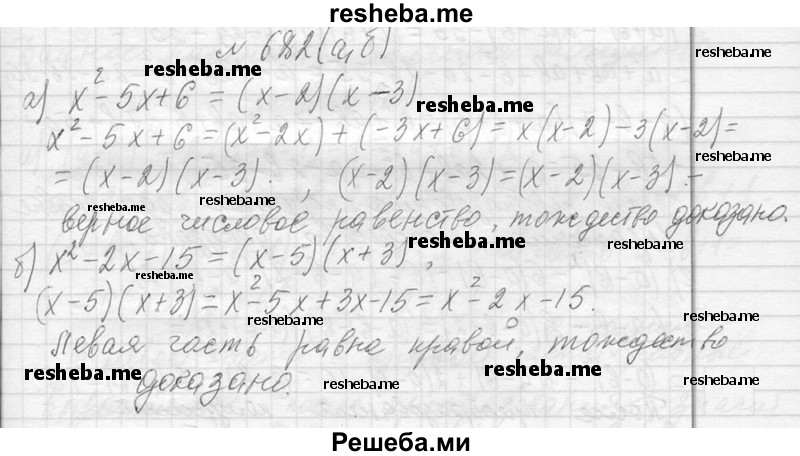 resheba.me
№ 682(а,б)
resheba.me
resheba.me
а) x² - 5x + 6 = (x-2)(x-3)
resheba.me
x² - 5x + 6 = (x² - 2x) + (-3x + 6) = x(x-2) - 3(x-2) =
resheba.me
= (x-2)(x-3). , (x-2)(x-3) = (x-2)(x-3). -
resheba.me
resheba.me
верное числовое равенство, тождество доказано.
resheba.me
resheba.me
б) x² - 2x - 15 = (x-5)(x+3) ,
resheba.me
(x-5)(x+3) = x² - 5x + 3x - 15 = x² - 2x - 15.
resheba.me
resheba.me
Левая часть равна правой, тождество
resheba.me
resheba.me
доказано.
resheba.me
resheba.me
Решеба.ми